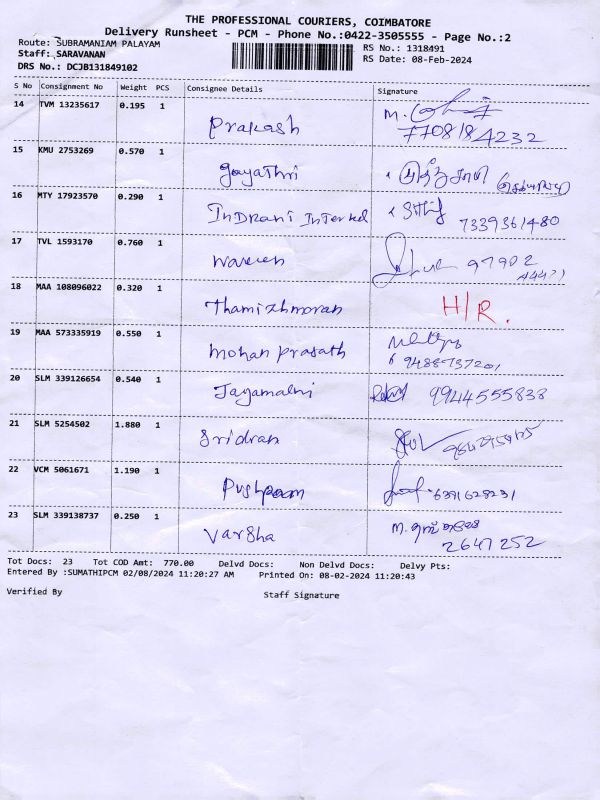 THE PROFESSIONAL COURIERS, COIMBATORE
Delivery Runsheet - PCM - Phone No.:0422-3505555 - Page No.:2
Route: SUBRAMANIAM PALAYAM RS No.: 1318491
Staff: SARAVANAN RS Date: 08-Feb-2024
DRS No.: DCJB131849102
S No Consignment No Weight PCS Consignee Details Signature
14 TVM 13235617 0.195 1 Prakash M.
7708184232
15 KMU 2753269 0.570 1 gayathri
16 MTY 17923570 0.290 1 InDRani 7339361480
17 TVL 1593170 0.760 1 97902
18 MAA 108096022 0.320 1 Thamizhmaran H/R.
19 MAA 573335919 0.550 1 mohan prasath
9488737201
20 SLM 339126654 0.540 1 9944555838
21 SLM 5254502 1.880 1
22 VCM 5061671 1.190 1 6391628231
23 SLM 339138737 0.250 1 Varsha M.
2647252
Tot Docs: 23 Tot COD Amt: 770.00 Delvd Docs: Non Delvd Docs: Delvy Pts:
Entered By :SUMATHIPCM 02/08/2024 11:20:27 AM Printed On: 08-02-2024 11:20:43
Verified By Staff Signature